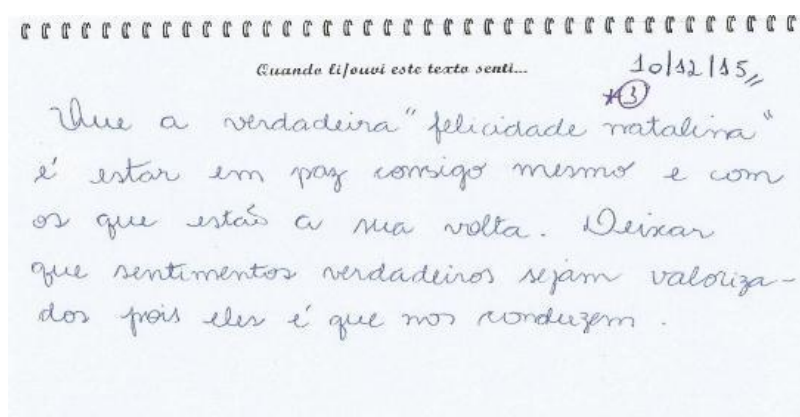 Quando li/ouvi este texto senti...
10/12/15,,
*3
Que a verdadeira "felicidade natalina"
é estar em paz consigo mesmo e com
os que estão a sua volta. Deixar
que sentimentos verdadeiros sejam valoriza-
dos pois eles é que nos conduzem.